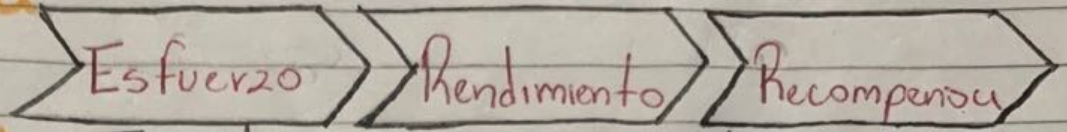 Esfuerzo Rendimiento Recompensa